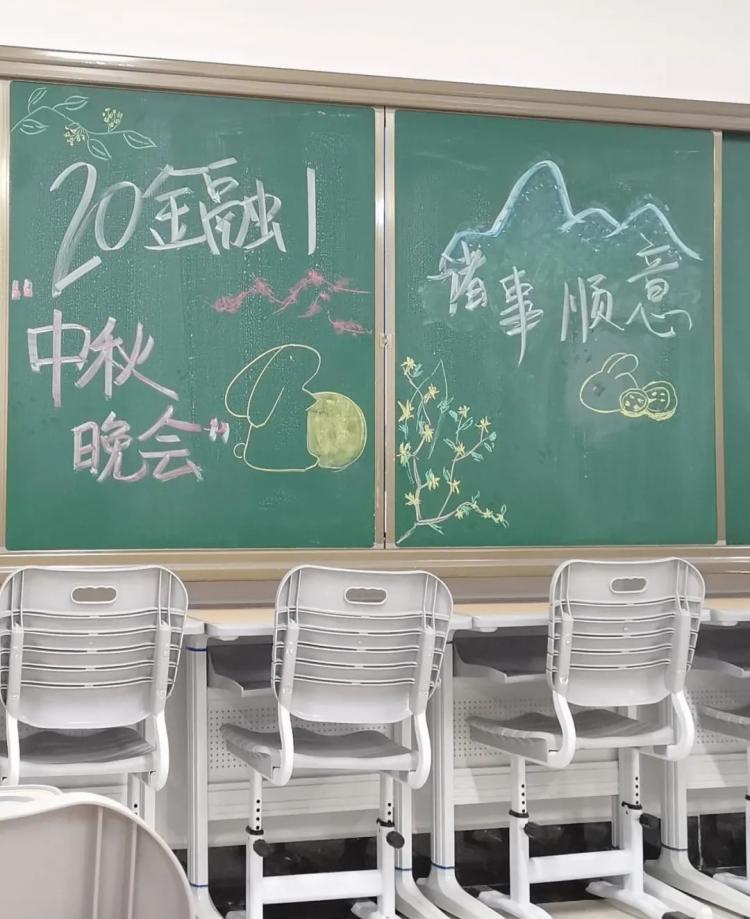 20金融1
"中秋
晚会"
诸事顺意